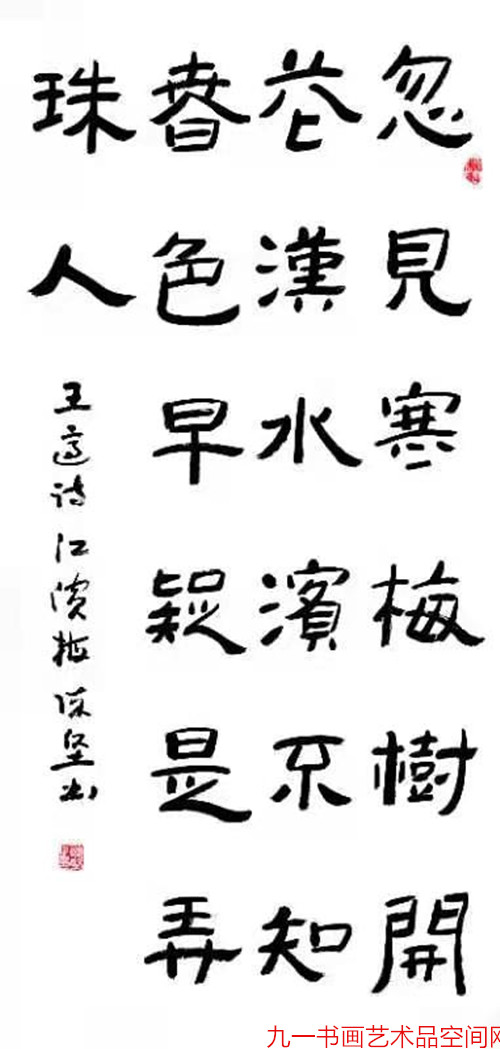 忽見寒梅樹開
花漢水濱不知
春色早疑是弄
珠人
王適诗江濱梅陈坚书
九一书画艺术品空间网